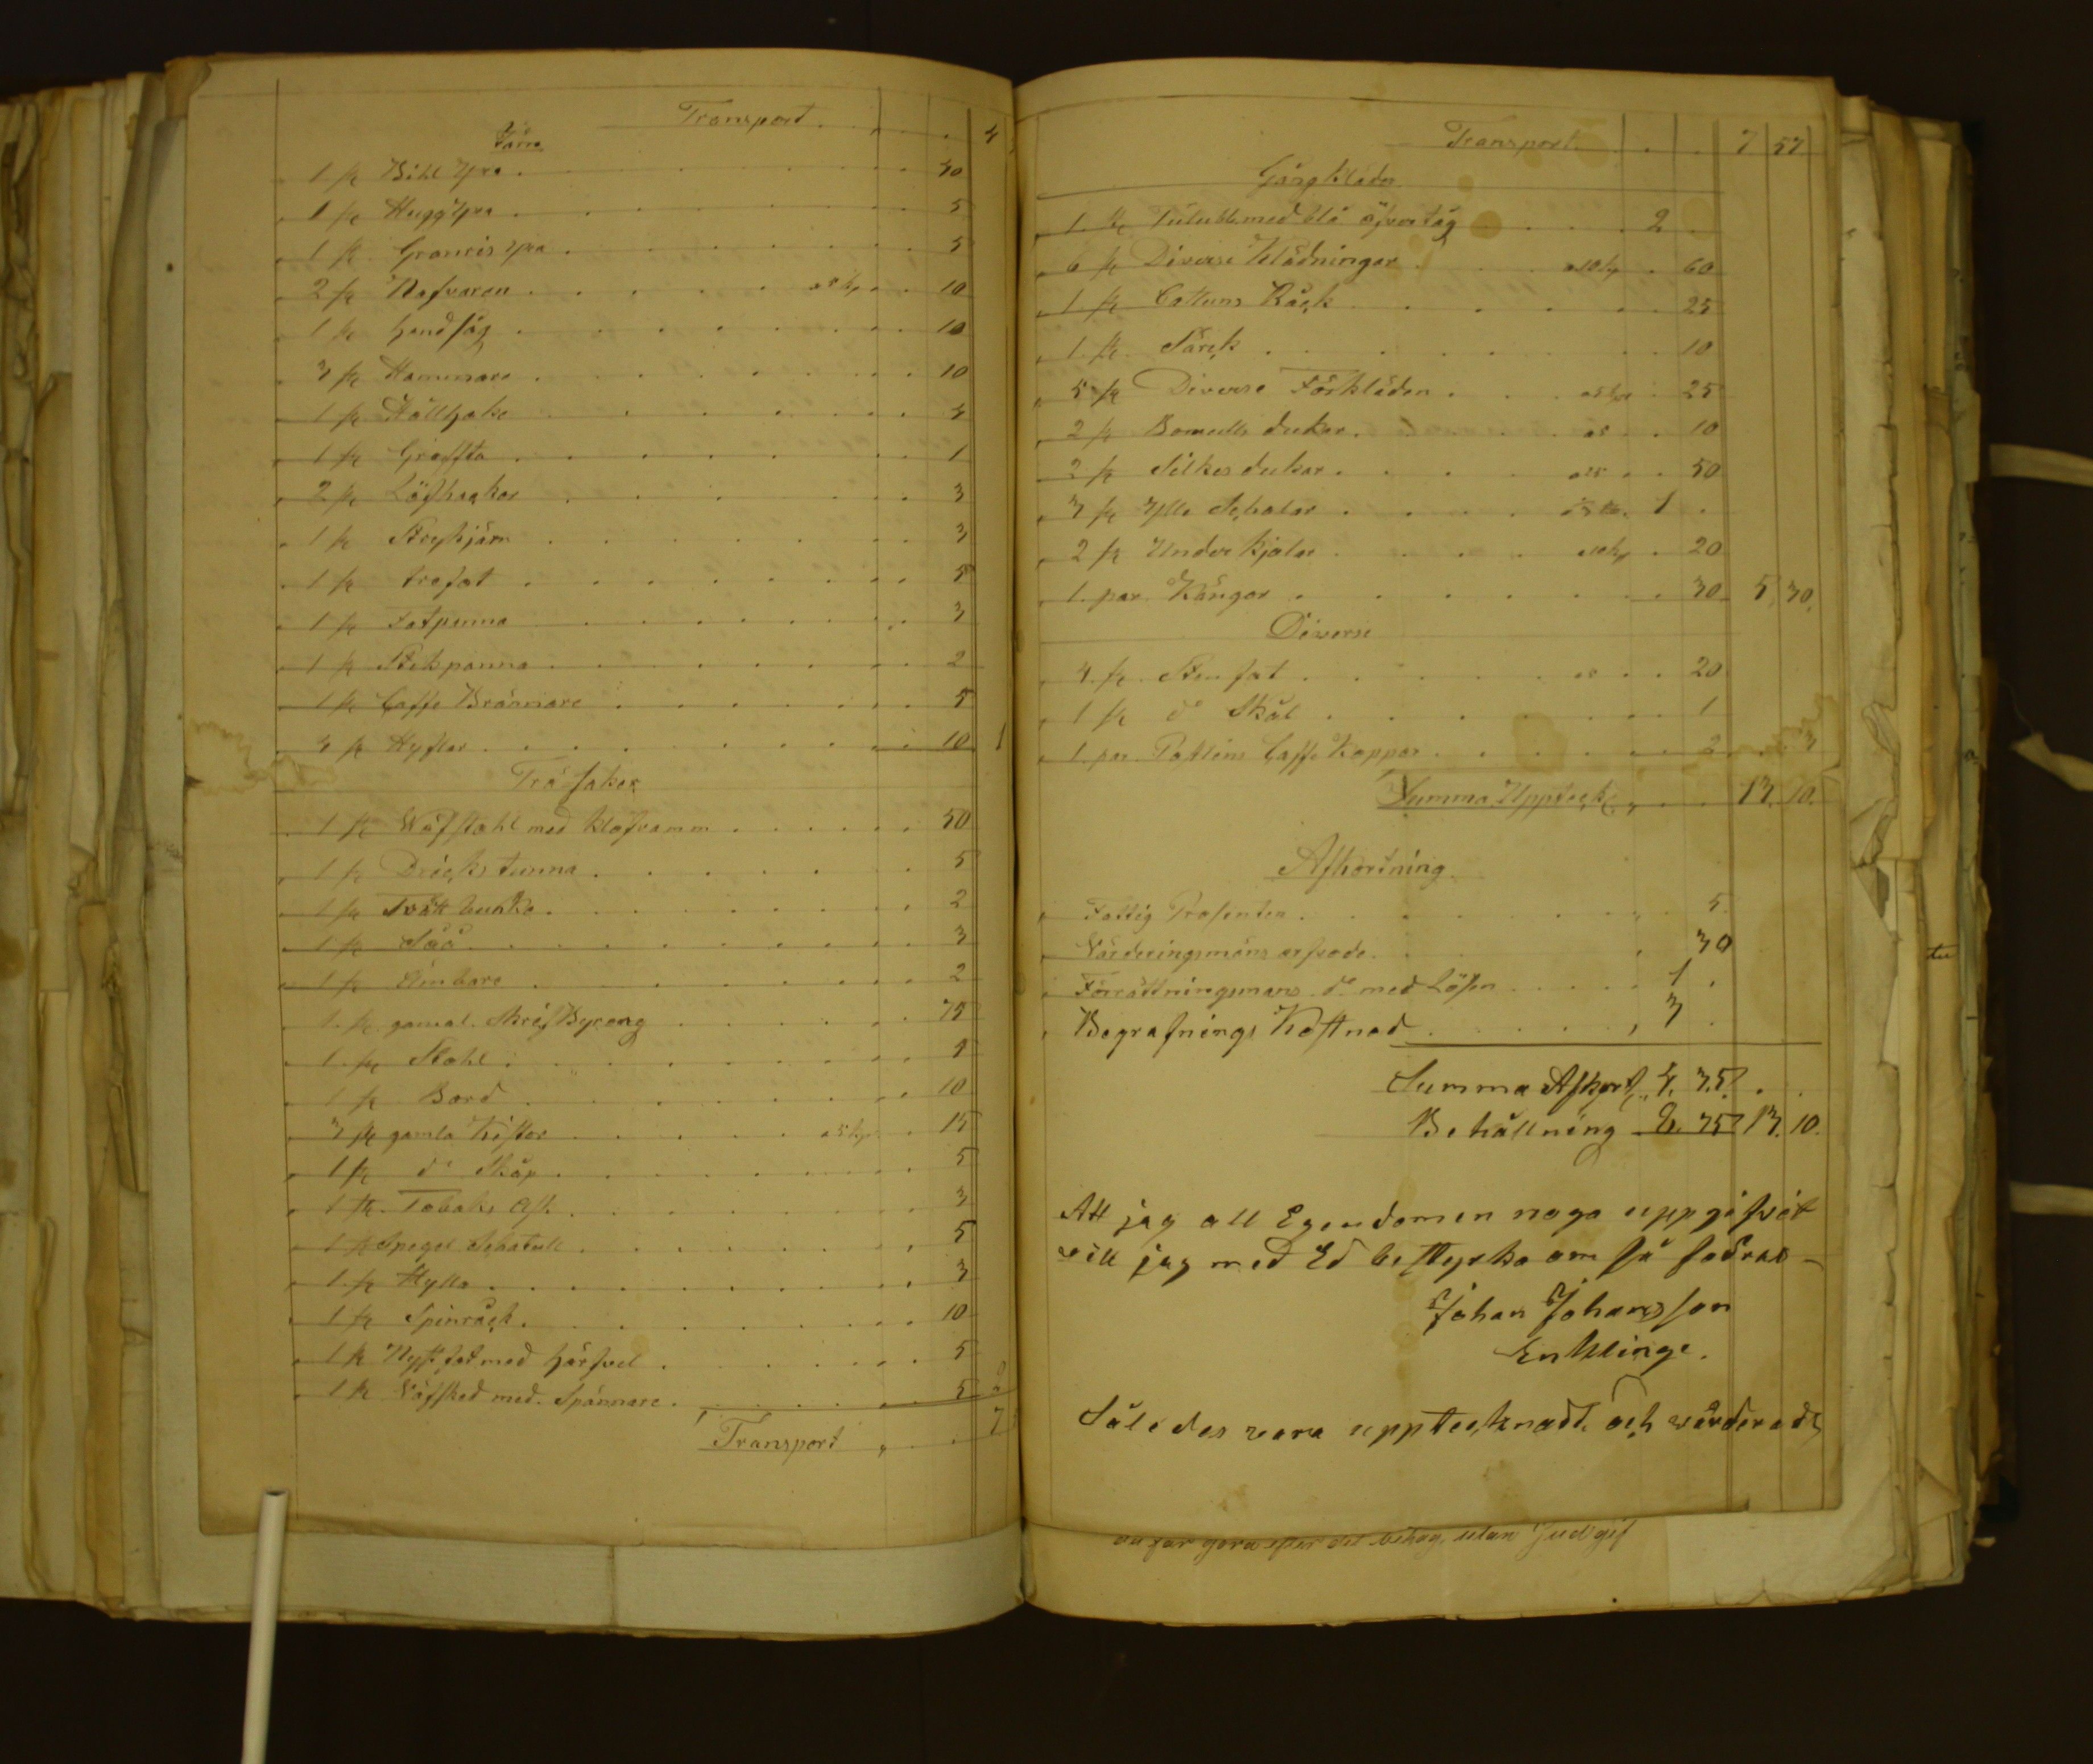 Transport . . . 4
Järn
1 st Bihl Yxa . 30
1 st Huggyxa . 5
1 st Grancis yxa . 5
2 st Nafvaren . a 5 kp . 10
1 st handsåg . 10
3 st Hammare . 10
1 st Hällhake . 3
1 st Greffta . 1
2 st Löfhackor . 3
1 st Strykjärn . 3
1 st trefot . 5
1 st Fotpanna . 3
1 st Stekpanna . 2
1 st Caffe Brännare . 5
3 st Hyflar . 10 1
Träsaker
1 st Wäfstohl med Klofvamm . 50
1 st Dricks tunna . 5
1 st Tvätt bunke . 2
1 st Såå . 3
1 st Ämbare . 2
1 st gamal Skrif Byrong . 75
1 st Stohl . 1
1 st Bord . 10
3 st gamla Kistor . a 5 kp . 15
1 st do Skåp . 5
1 st Tobaks Ask . 3
1 st Spegel Schatull . 5
1 st Hylla . 3
1 st Spinråck . 10
1 st Nystfot med härfvel . 5
1 st Väfsked med Spännare . 5 2
Transport „ . . 7
Transport . . . 7 57
Gångkläder
1 st Tulubb med blå öfvertåg . 2 .
6 st Diverse Klädningar . a 10 kp . 60
1 st Cattuns Råck . 25
1 st Särck . 10
5 st Diverse Förkläden . a 5 kp . 25
2 st Bomulls dukar . a 5 . 10
2 st Silkes dukar . a 25 . 50
3 st Ylle Schalar . 1 .
2 st Under kjolar . a 10 kp . 20
1 par Kängor . 30 5, 30,
Diverse
4 st Stenfat . a 5 . 20
1 st do Skål . 1
1 par Postlins Caffe Koppar . 2
Summa Uppteck: „ . . 13. 10.
Afkortning
Fattig Prosenten . 5.
Värderingsmäns arfvode . 30
Förrättningsmans do med Lösen . 1 .
Begrafnings Kostnad . 3 .
Summa Afkort. 4. 35 . .
Behållning 8. 75 13. 10.
Att jag all Egendomen noga uppgifvit
vill jag med Ed bestyrka om så fodras –
Johan Johansson
Enklinge.
Således vara upptecknadt och värderadt
du får göra efter det behag, utan Jud gif